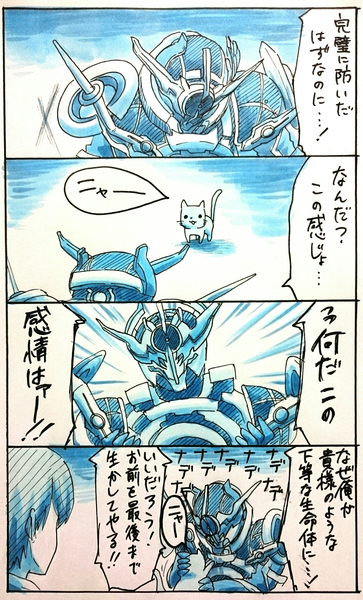 完璧に防いだ
はずなのに…!
なんだ?
この感じょ…
ニャー
ヲ何だこの
感情はァー!!
なぜ俺が
貴様のような
下等な生命体に…!
ナデ
ナデ
ナデ
ナデ
ナデ
ニャー
いいだろう!
お前を最後まで
生かしてやる!!